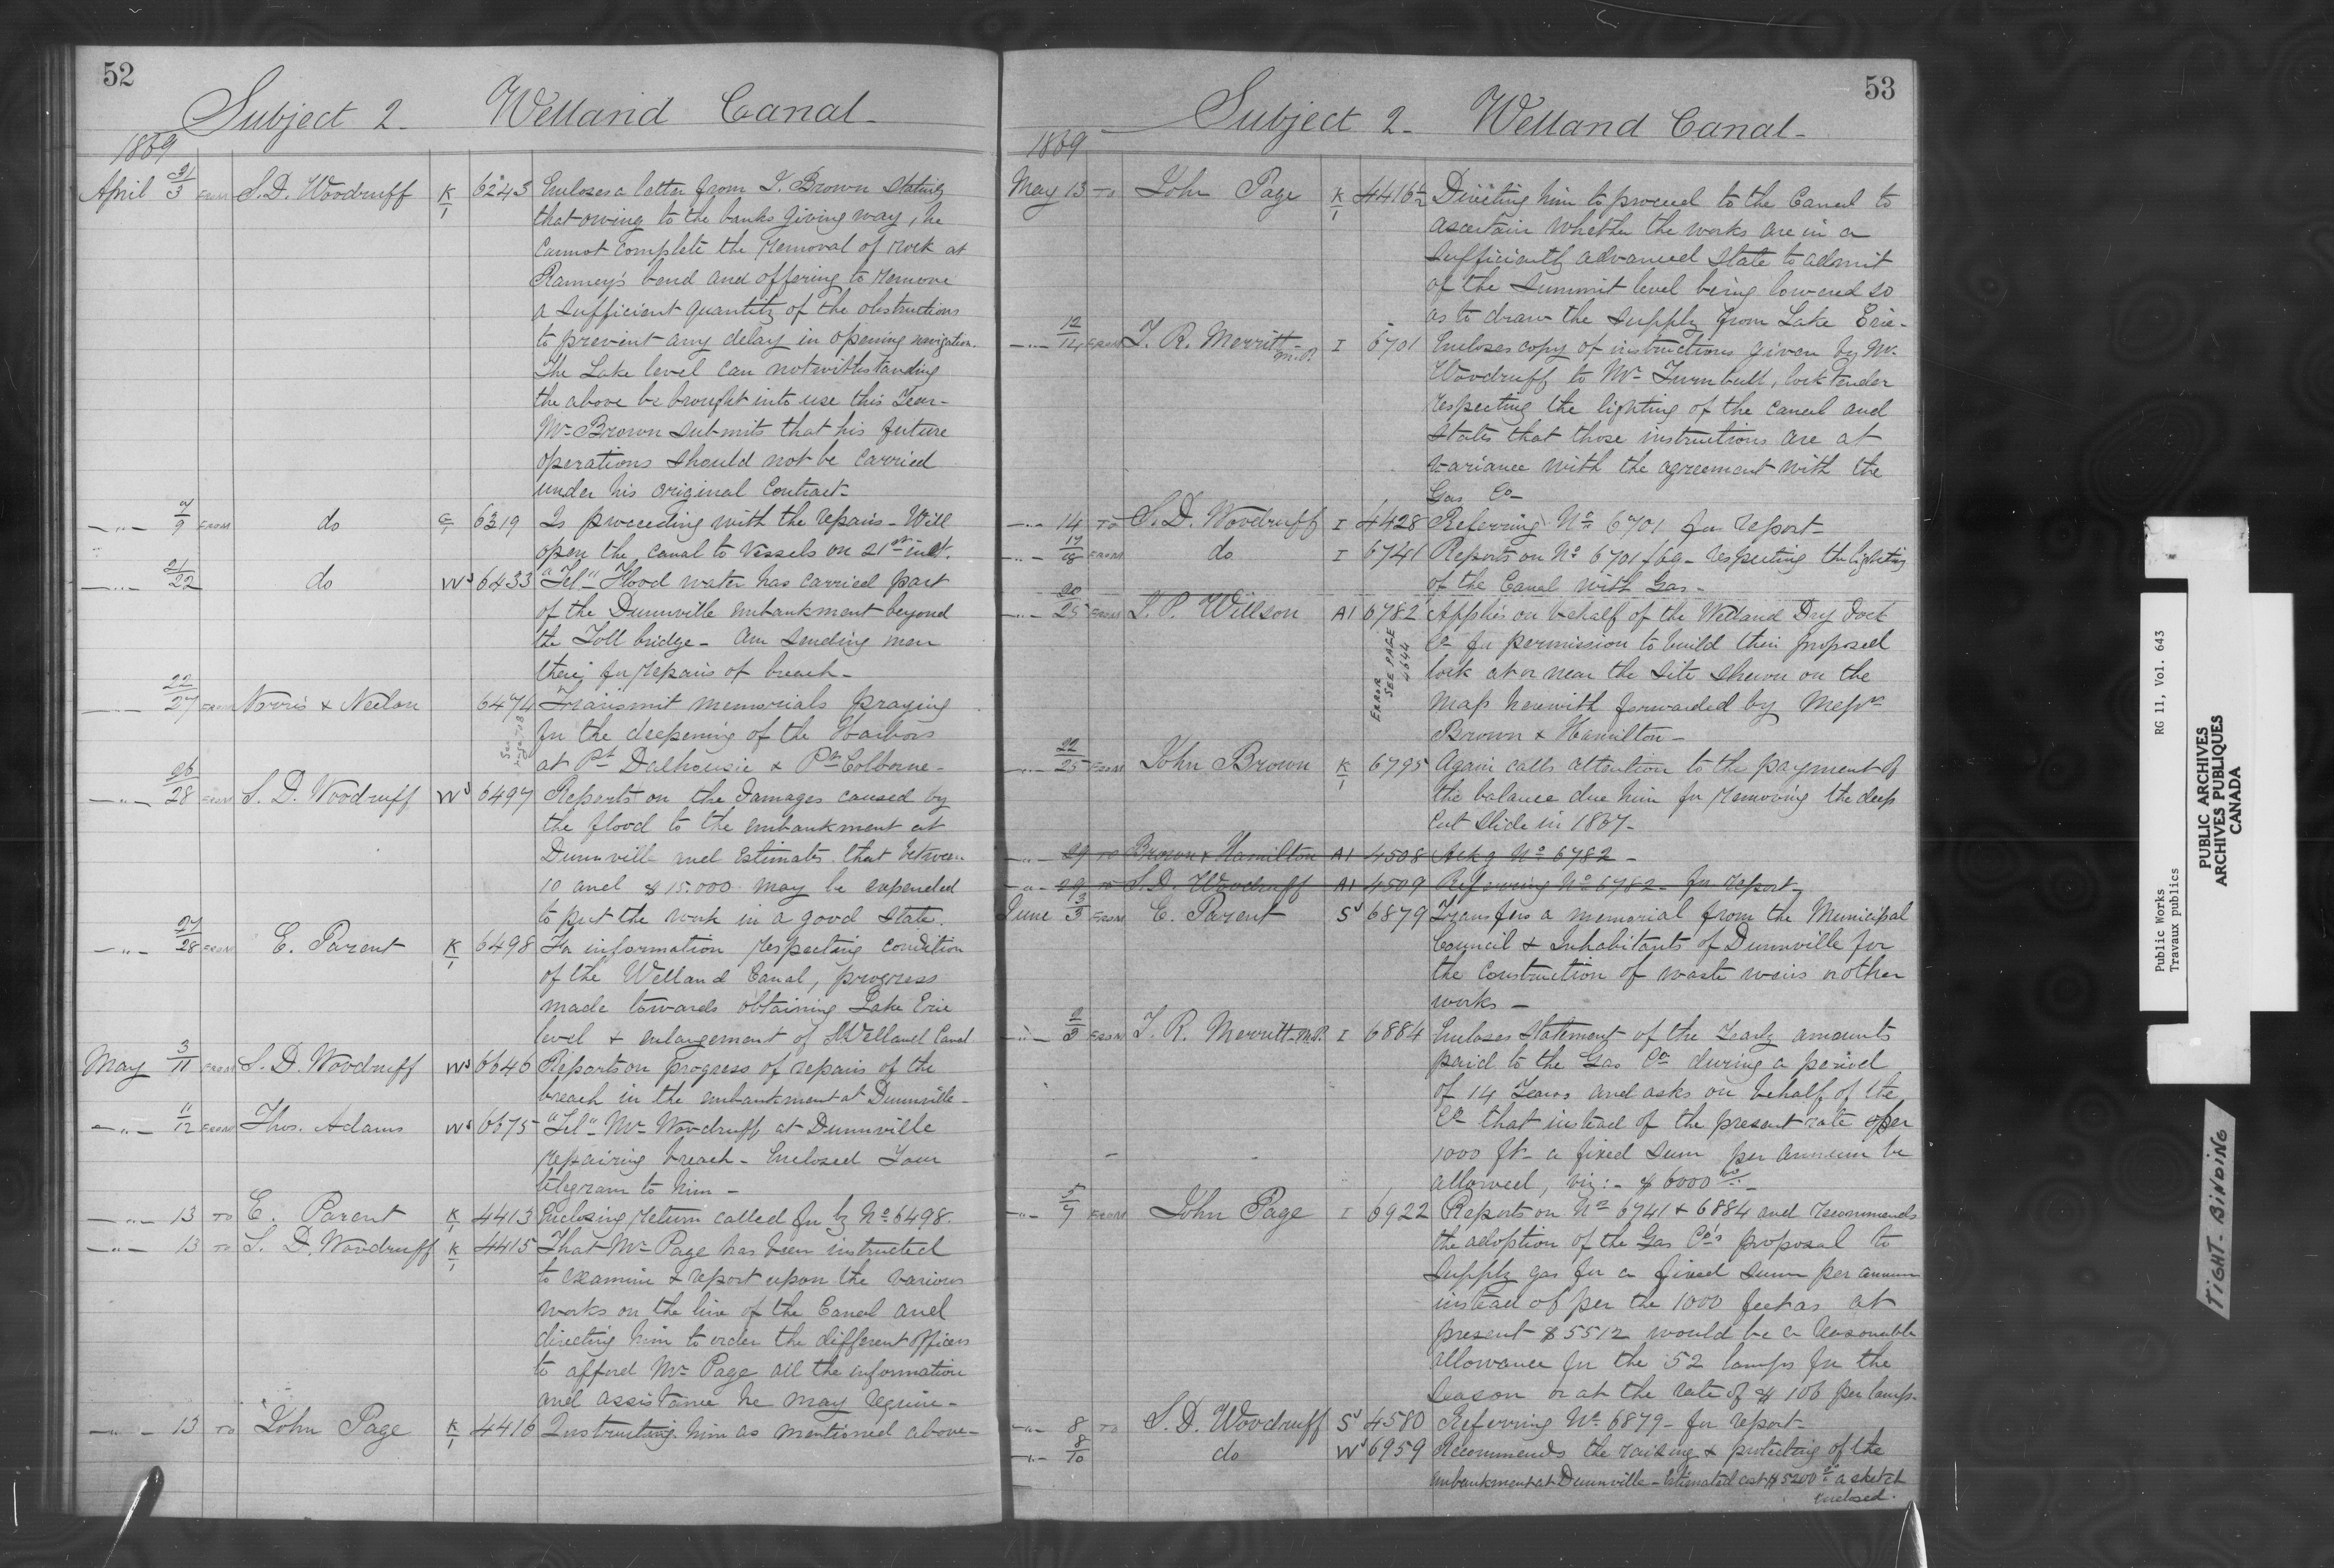 52
Subject 2 - Welland Canal -
1869
April 31/3 FROM S. D. Woodruff K/1 6245 Encloses a letter from J. Brown stating
that owing to the banks giving way, he
cannot complete the removal of rock at
Ranney's bend and offering to remove
a sufficient quantity of the obstructions
to prevent any delay in opening navigation.
The Lake level can notwithstanding
the above be brought into use this Year -
Mr Brown submits that his future
operations should not be carried
under his original Contract -
- " - 7/9 FROM do 6319 Is proceeding with the repairs - Will
open the canal to Vessels on 21st inst.
- " - 21/22 do Ws 6433 "Tel" Flood water has carried part
of the Dunnville embankment beyond
the Toll bridge - Am sending men
there for repairs of breach -
- " - 22/27 FROM Norris & Neelon 6474 Transmit memorials praying
for the deepening of the Harbors
at Pt Dalhousie & Pt Colborne -
- " - 26/28 FROM S. D. Woodruff Ws 6497 Reports on the damages caused by
the flood to the embankment at
Dunnville and estimates that between
10 and $15.000 may be expended
to put the work in a good state.
- " - 27/28 FROM E. Parent K/1 6498 For information respecting condition
of the Welland Canal, progress
made towards obtaining Lake Erie
level & enlargement of Welland Canal
May 3/11 FROM S. D. Woodruff Ws 6646 Reports on progress of repairs of the
breach in the embankment at Dunnville -
- " - 11/12 FROM Thos. Adams Ws 6675 "Tel" Mr Woodruff at Dunnville
repairing breach - Enclosed Your
telegram to him -
- " - 13 TO E. Parent K/1 4413 Enclosing return called for by No 6498.
- " - 13 TO S. D. Woodruff K/1 4415 That Mr Page has been instructed
to examine & report upon the various
works on the line of the Canal and
directing him to order the different officers
to afford Mr Page all the information
and assistance he may require -
- " - 13 TO John Page K/1 4416 Instructing him as mentioned above -
53
Subject 2 - Welland Canal -
1869
May 13 TO John Page K/1 4416½ Directing him to proceed to the Canal to
ascertain whether the works are in a
sufficiently advanced state to admit
of the summit level being lowered so
as to draw the supply from Lake Erie -
- " - 12/14 FROM T. R. Merritt M.P. I 6701 Encloses copy of instructions given by Mr
Woodruff to Mr Turnbull, lock tender
respecting the lighting of the canal and
states that those instructions are at
variance with the agreement with the
Gas Co -
- " - 14 TO S. D. Woodruff I 4428 Referring No 6701 for report -
- " - 17/18 FROM do I 6741 Reports on No 6701/69 - respecting the lighting
of the Canal with Gas -
- " - 20/25 FROM J. P. Willson A1 6782 Applies on behalf of the Welland Dry Dock
ERROR SEE PAGE 4644
Co for permission to build their proposed
lock at or near the site shewn on the
map herewith forwarded by Messrs
Brown & Hamilton -
- " - 22/25 FROM John Brown K/1 6795 Again calls attention to the payment of
the balance due him for removing the deep
cut slide in 1867 -
- " - 29 TO Brown & Hamilton A1 4508 Ackg No 6782 -
- " - 29 TO S. D. Woodruff A1 4509 Referring No 6782 - for report -
June 3/3 FROM E. Parent Ss 6879 Transfers a memorial from the Municipal
Council & Inhabitants of Dunnville for
the construction of waste weirs & other
works -
- " - 2/3 FROM T. R. Merritt M.P. I 6884 Encloses statement of the Yearly amounts
paid to the Gas Co during a period
of 14 Years and asks on behalf of the
Co that instead of the present rate per
1000 ft - a fixed sum per annum be
allowed, viz: - $6000.00 -
- " - 5/7 FROM John Page I 6922 Reports on Nos 6741 & 6884 and recommends
the adoption of the Gas Co's proposal to
supply gas for a fixed sum per annum
instead of per the 1000 feet as at
present $5512 would be a reasonable
allowance for the 52 lamps for the
season or at the rate of $106 per lamp.
- " - 8 TO S. D. Woodruff Ss 4580 Referring No 6879 - for report -
- " - 8/10 do Ws 6959 Recommends the raising & protecting of the
embankment at Dunnville - Estimated cost $5200 - a sketch
enclosed.
Public Works RG 11, Vol. 643
Travaux publics
PUBLIC ARCHIVES
ARCHIVES PUBLIQUES
CANADA
TIGHT BINDING